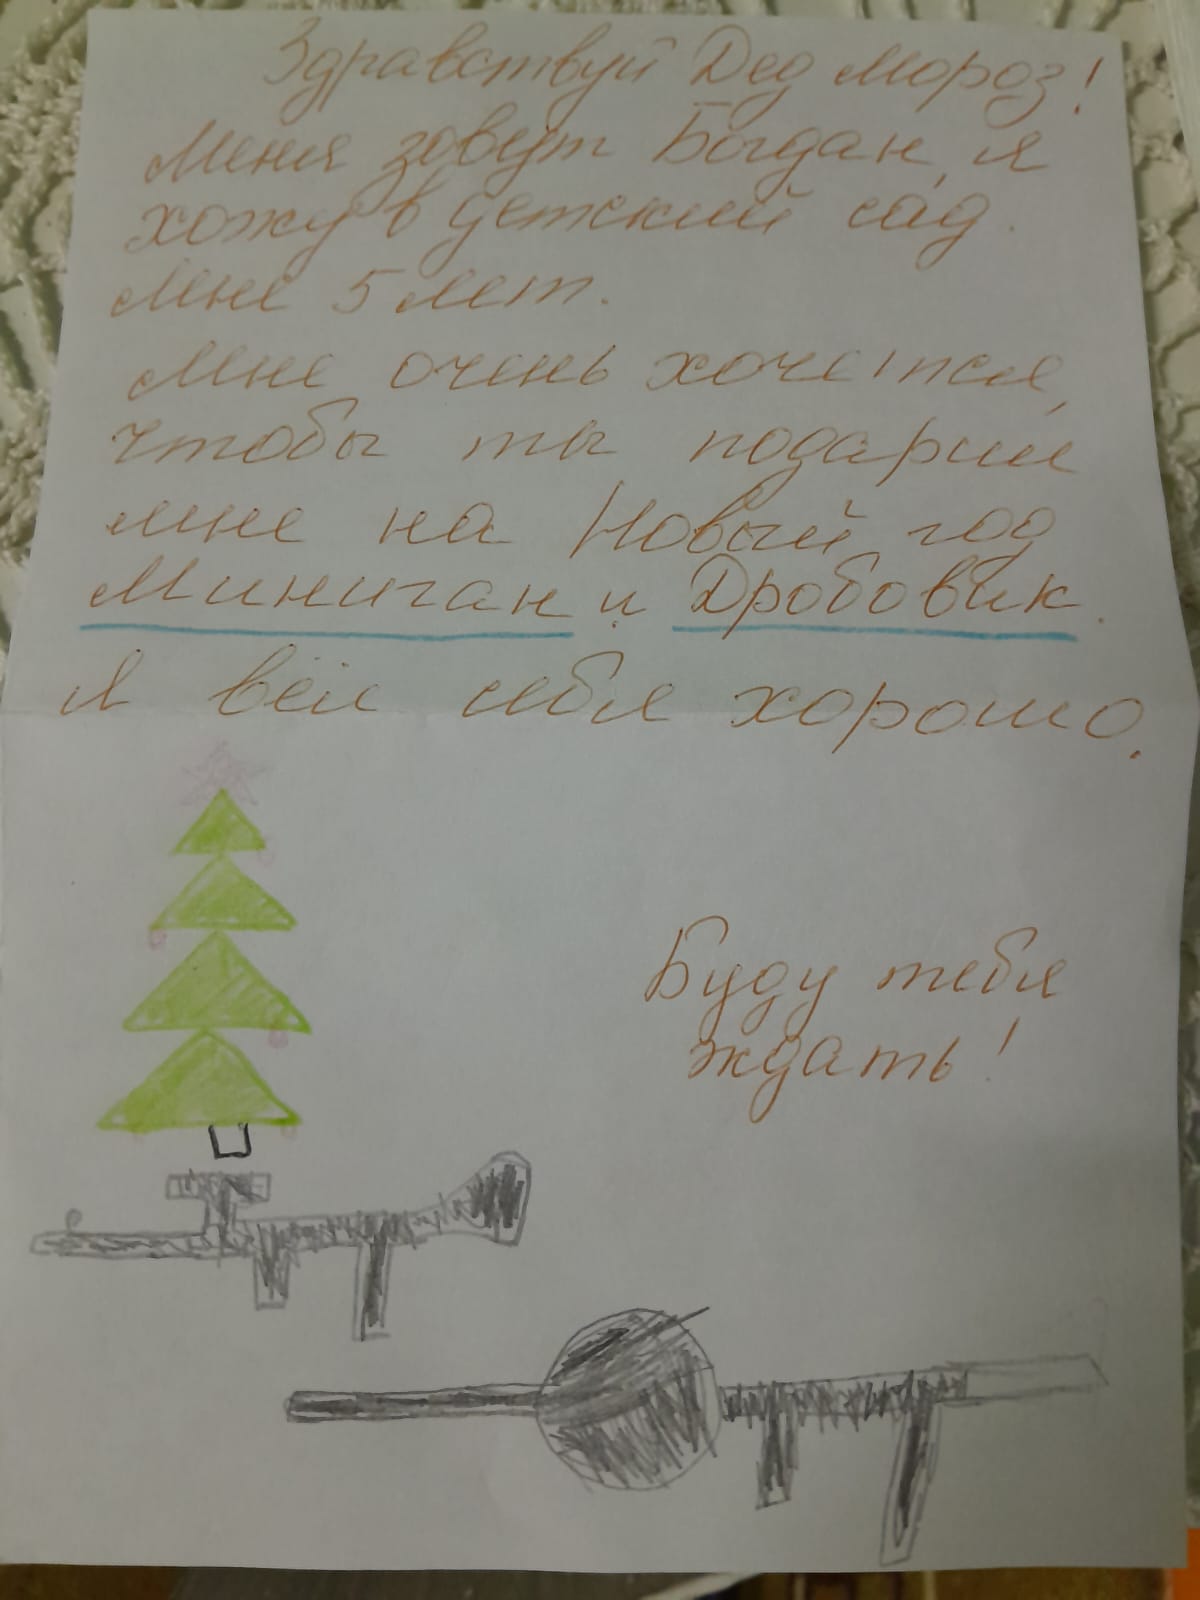 Здравствуй Дед Мороз!
Меня зовут Богдан, я
хожу в детский сад.
Мне 5 лет.
Мне очень хочется,
чтобы ты подарил
мне на Новый год
Миниган и Дробовик.
Я вёл себя хорошо.
Буду тебя
ждать!